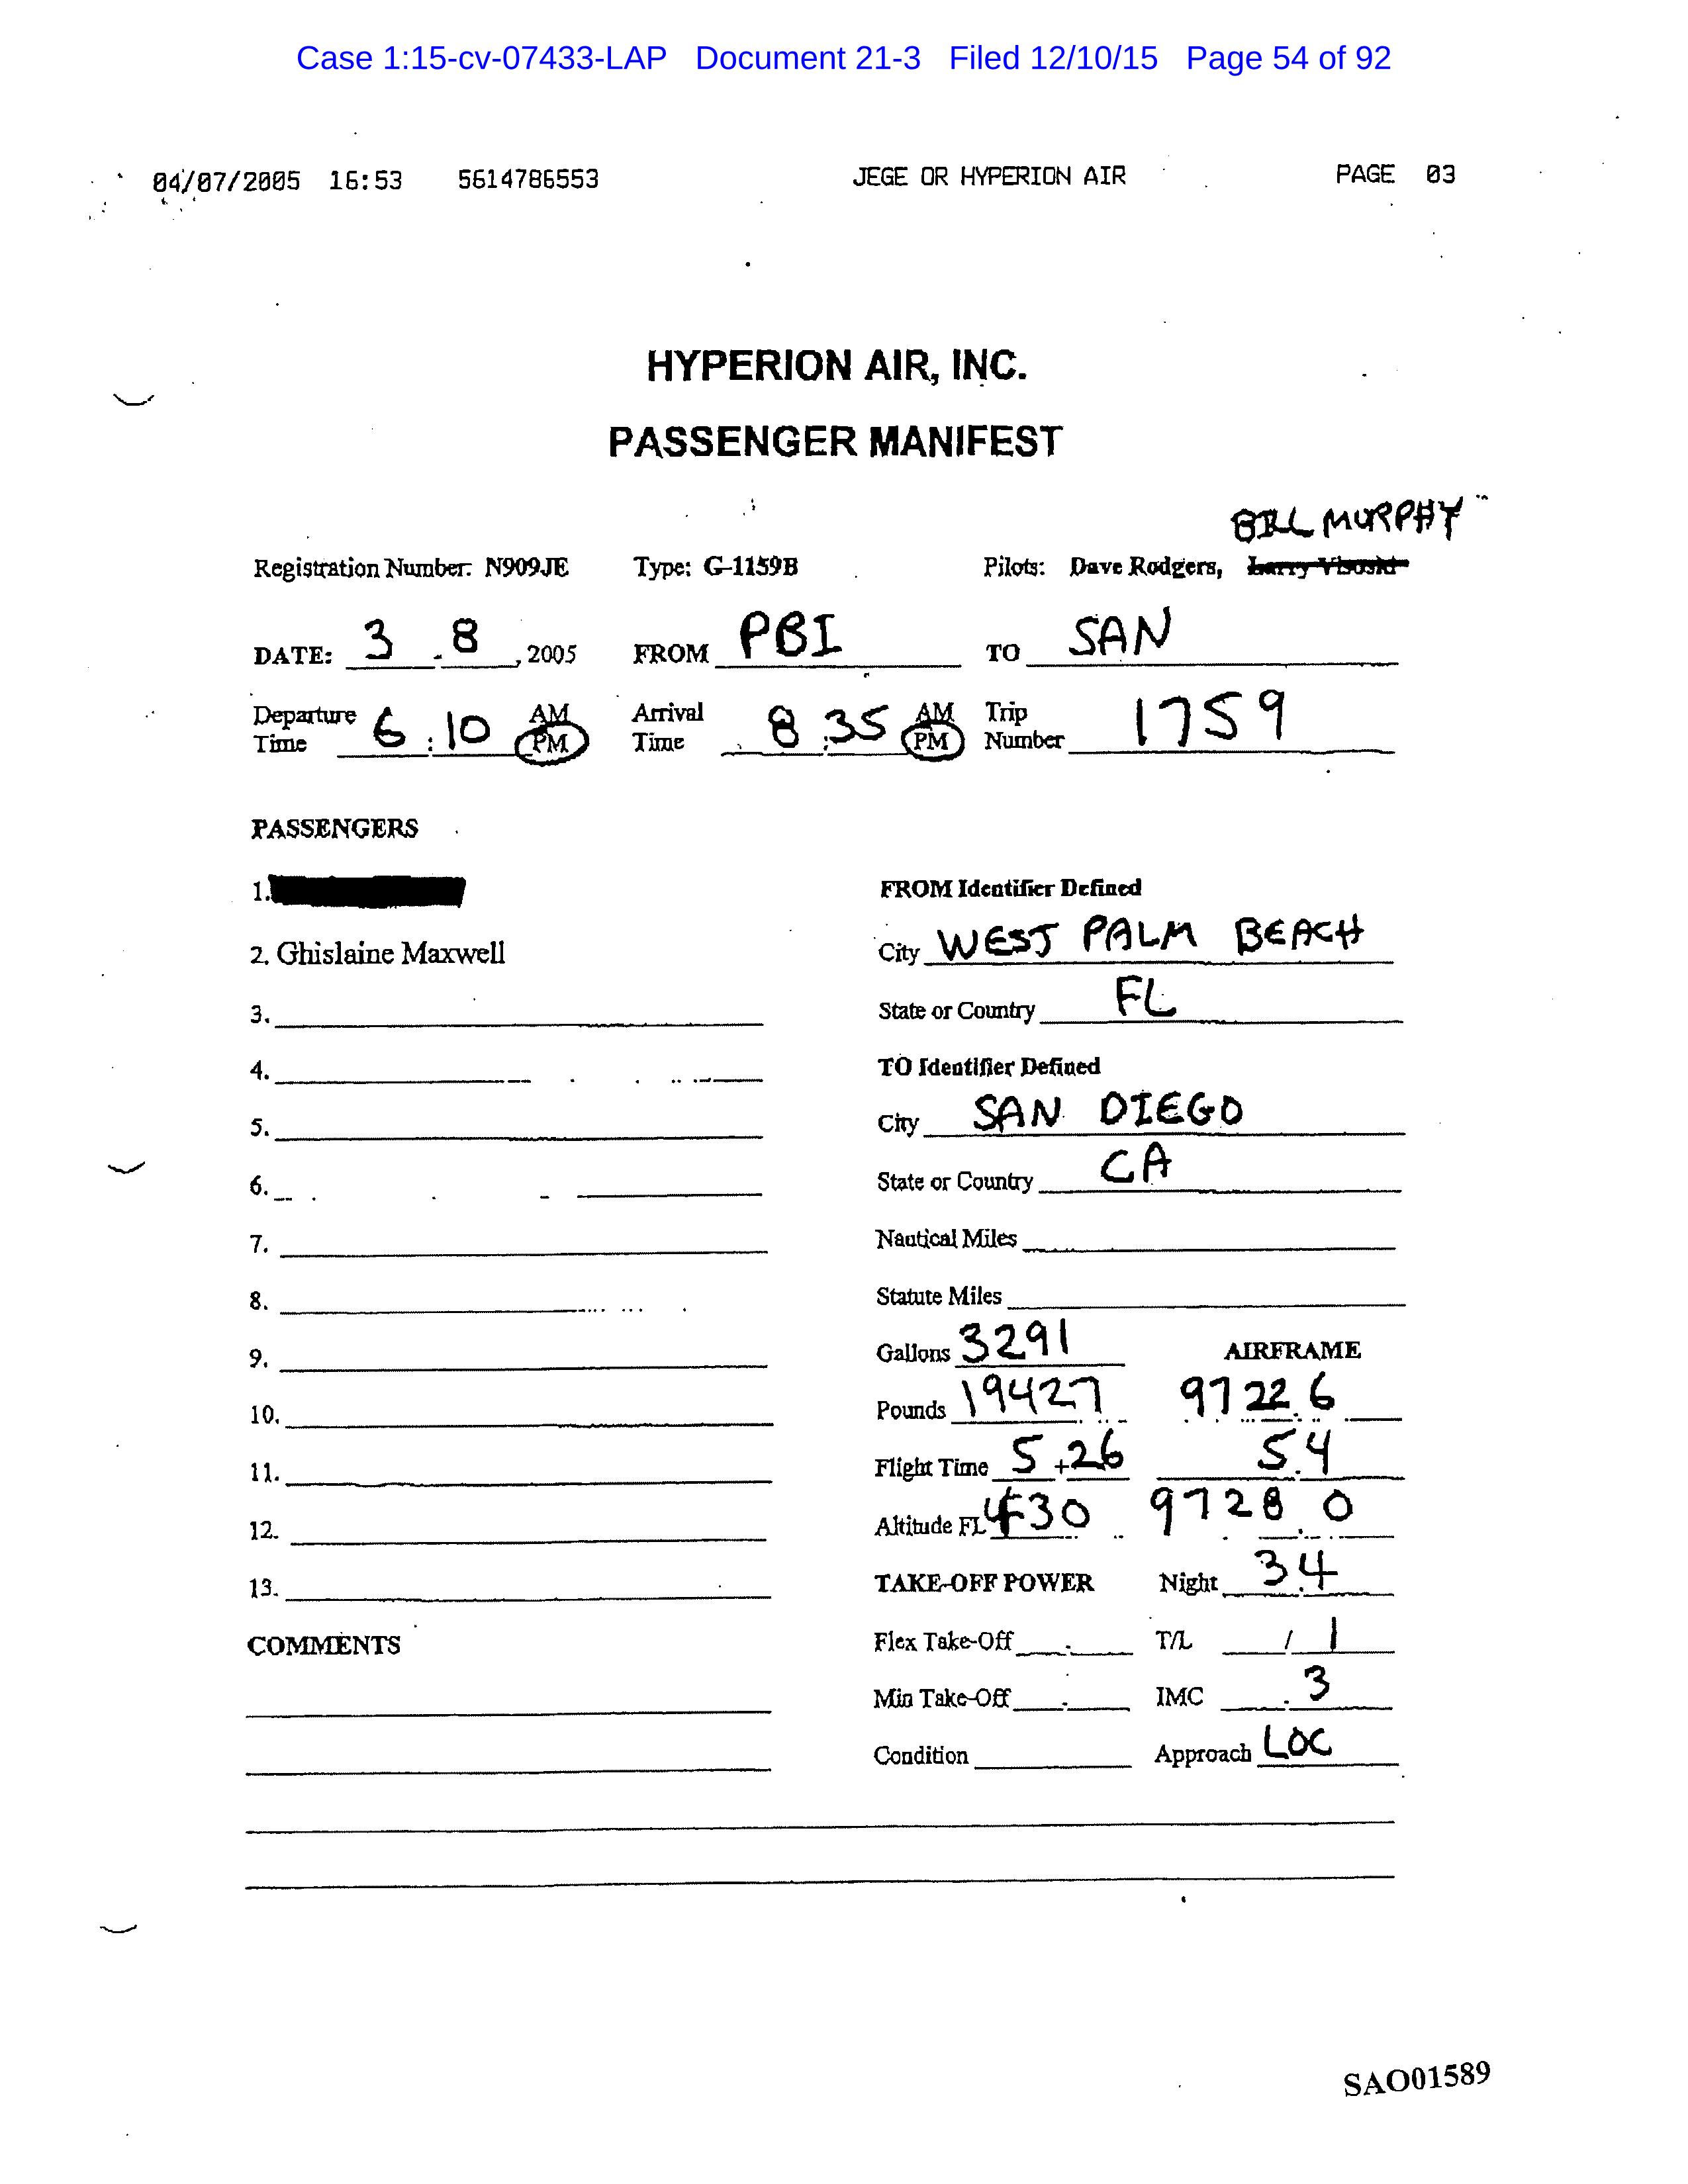 Case 1:15-cv-07433-LAP Document 21-3 Filed 12/10/15 Page 54 of 92
04/07/2005 16:53 5614786553 JEGE OR HYPERION AIR PAGE 03
HYPERION AIR, INC.
PASSENGER MANIFEST
BILL MURPHY
Registration Number: N909JE Type: G-1159B Pilots: Dave Rodgers, Larry Visoski
DATE: 3 . 8 , 2005 FROM PBI TO SAN
Departure Time 6 : 10 AM PM Arrival Time 8 : 35 AM PM Trip Number 1759
PASSENGERS
1. FROM Identifier Defined
2. Ghislaine Maxwell City WEST PALM BEACH
3. State or Country FL
4. TO Identifier Defined
5. City SAN DIEGO
6. State or Country CA
7. Nautical Miles
8. Statute Miles
9. Gallons 3291 AIRFRAME
10. Pounds 19427 9722.6
11. Flight Time 5 + 26 5.4
12. Altitude FL 430 9728.0
13. TAKE-OFF POWER Night 3.4
COMMENTS Flex Take-Off . T/L / 1
Min Take-Off . IMC . 3
Condition Approach LOC
SAO01589